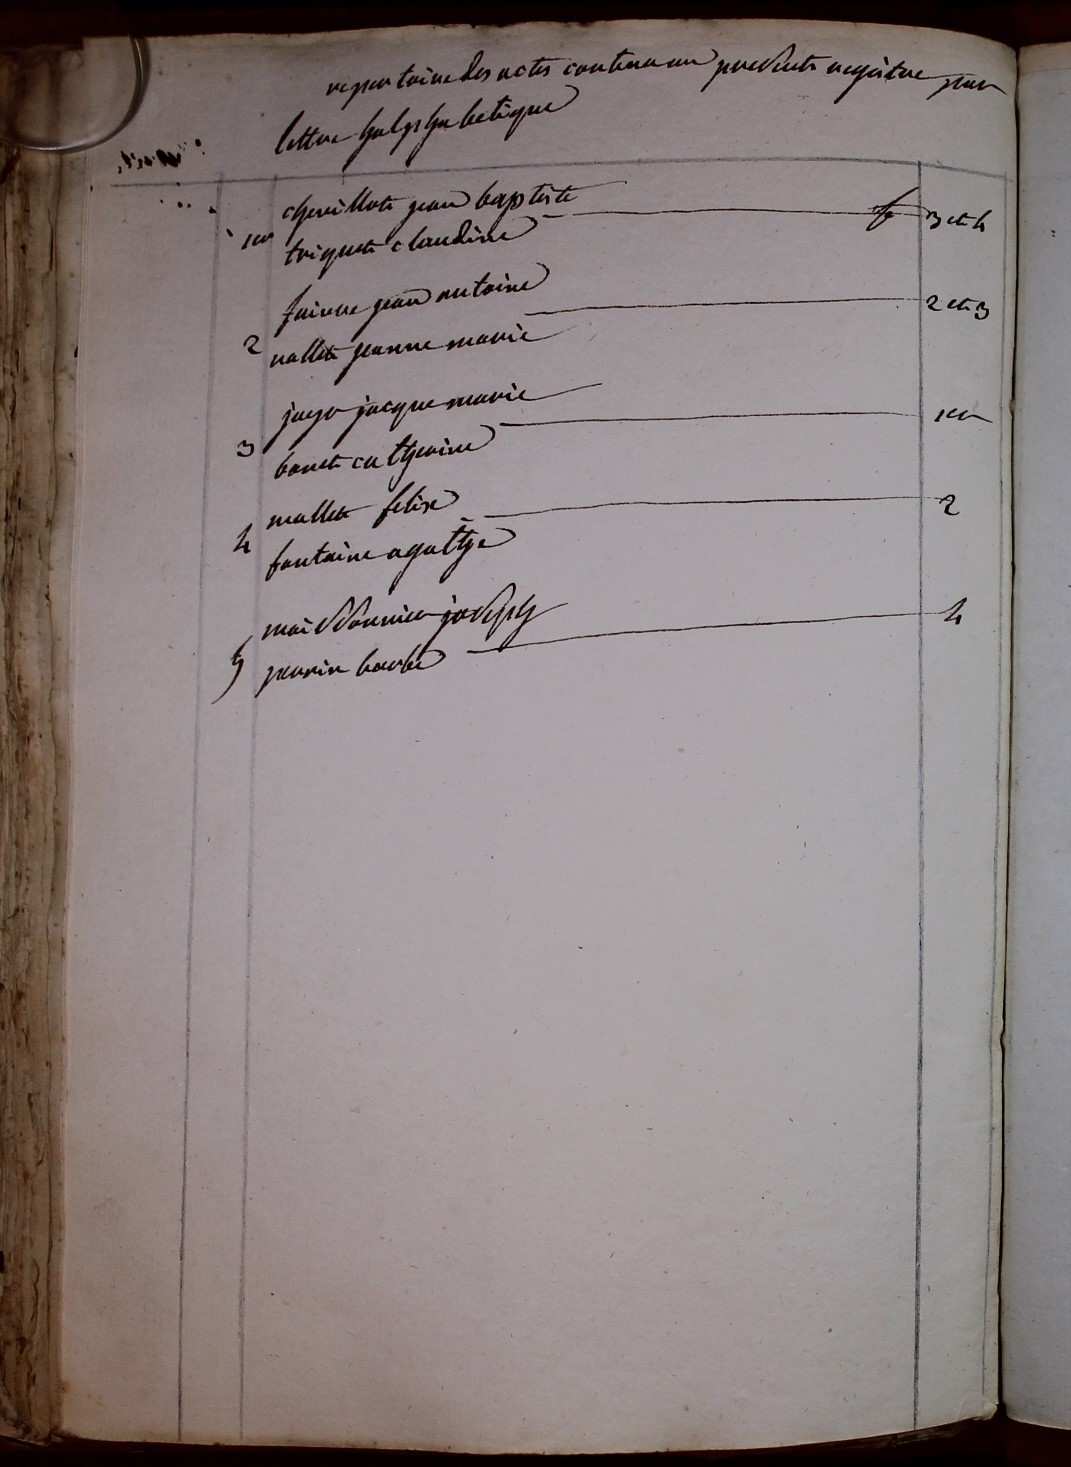 repertoire des actes contenu au present registre par
lettre halphabetique
1er chevillote jean baptiste
triquet claudine fo 3 et 4
faivre jean antoine
2 vallet jeanne marie 2 et 3
jacque marie
3 bonet catherine 1er
mallet felix 2
4 fontaine agathe
maissonnier joseph 4
5 perrin barbe